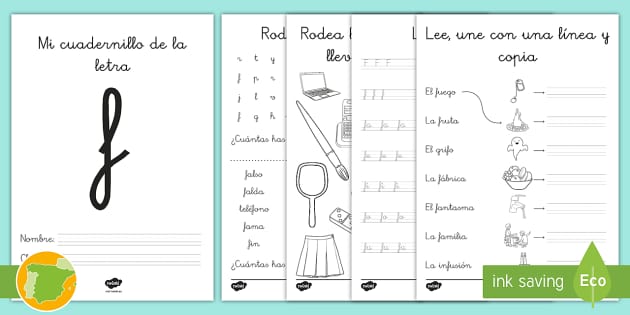 Mi cuadernillo de la
letra
f
Nombre:
twinkl
Rod
r t y
f p r
j l v
f g h
¿Cuántas has
falso
falda
teléfono
fama
fin
¿Cuántas has
twinkl
Rodea
llev
twinkl
L
F F F
fa fa fa
fo fo fo
twinkl
Lee, une con una línea y
copia
El fuego
La fruta
El grifo
La fábrica
El fantasma
La familia
La infusión
twinkl
ink saving
Eco